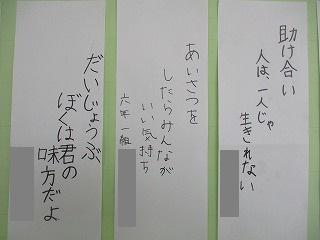 助け合い
人は、一人じゃ
生きれない
あいさつを
したらみんなが
いい気持ち
六年一組
だいじょうぶ、
ぼくは君の
味方だよ